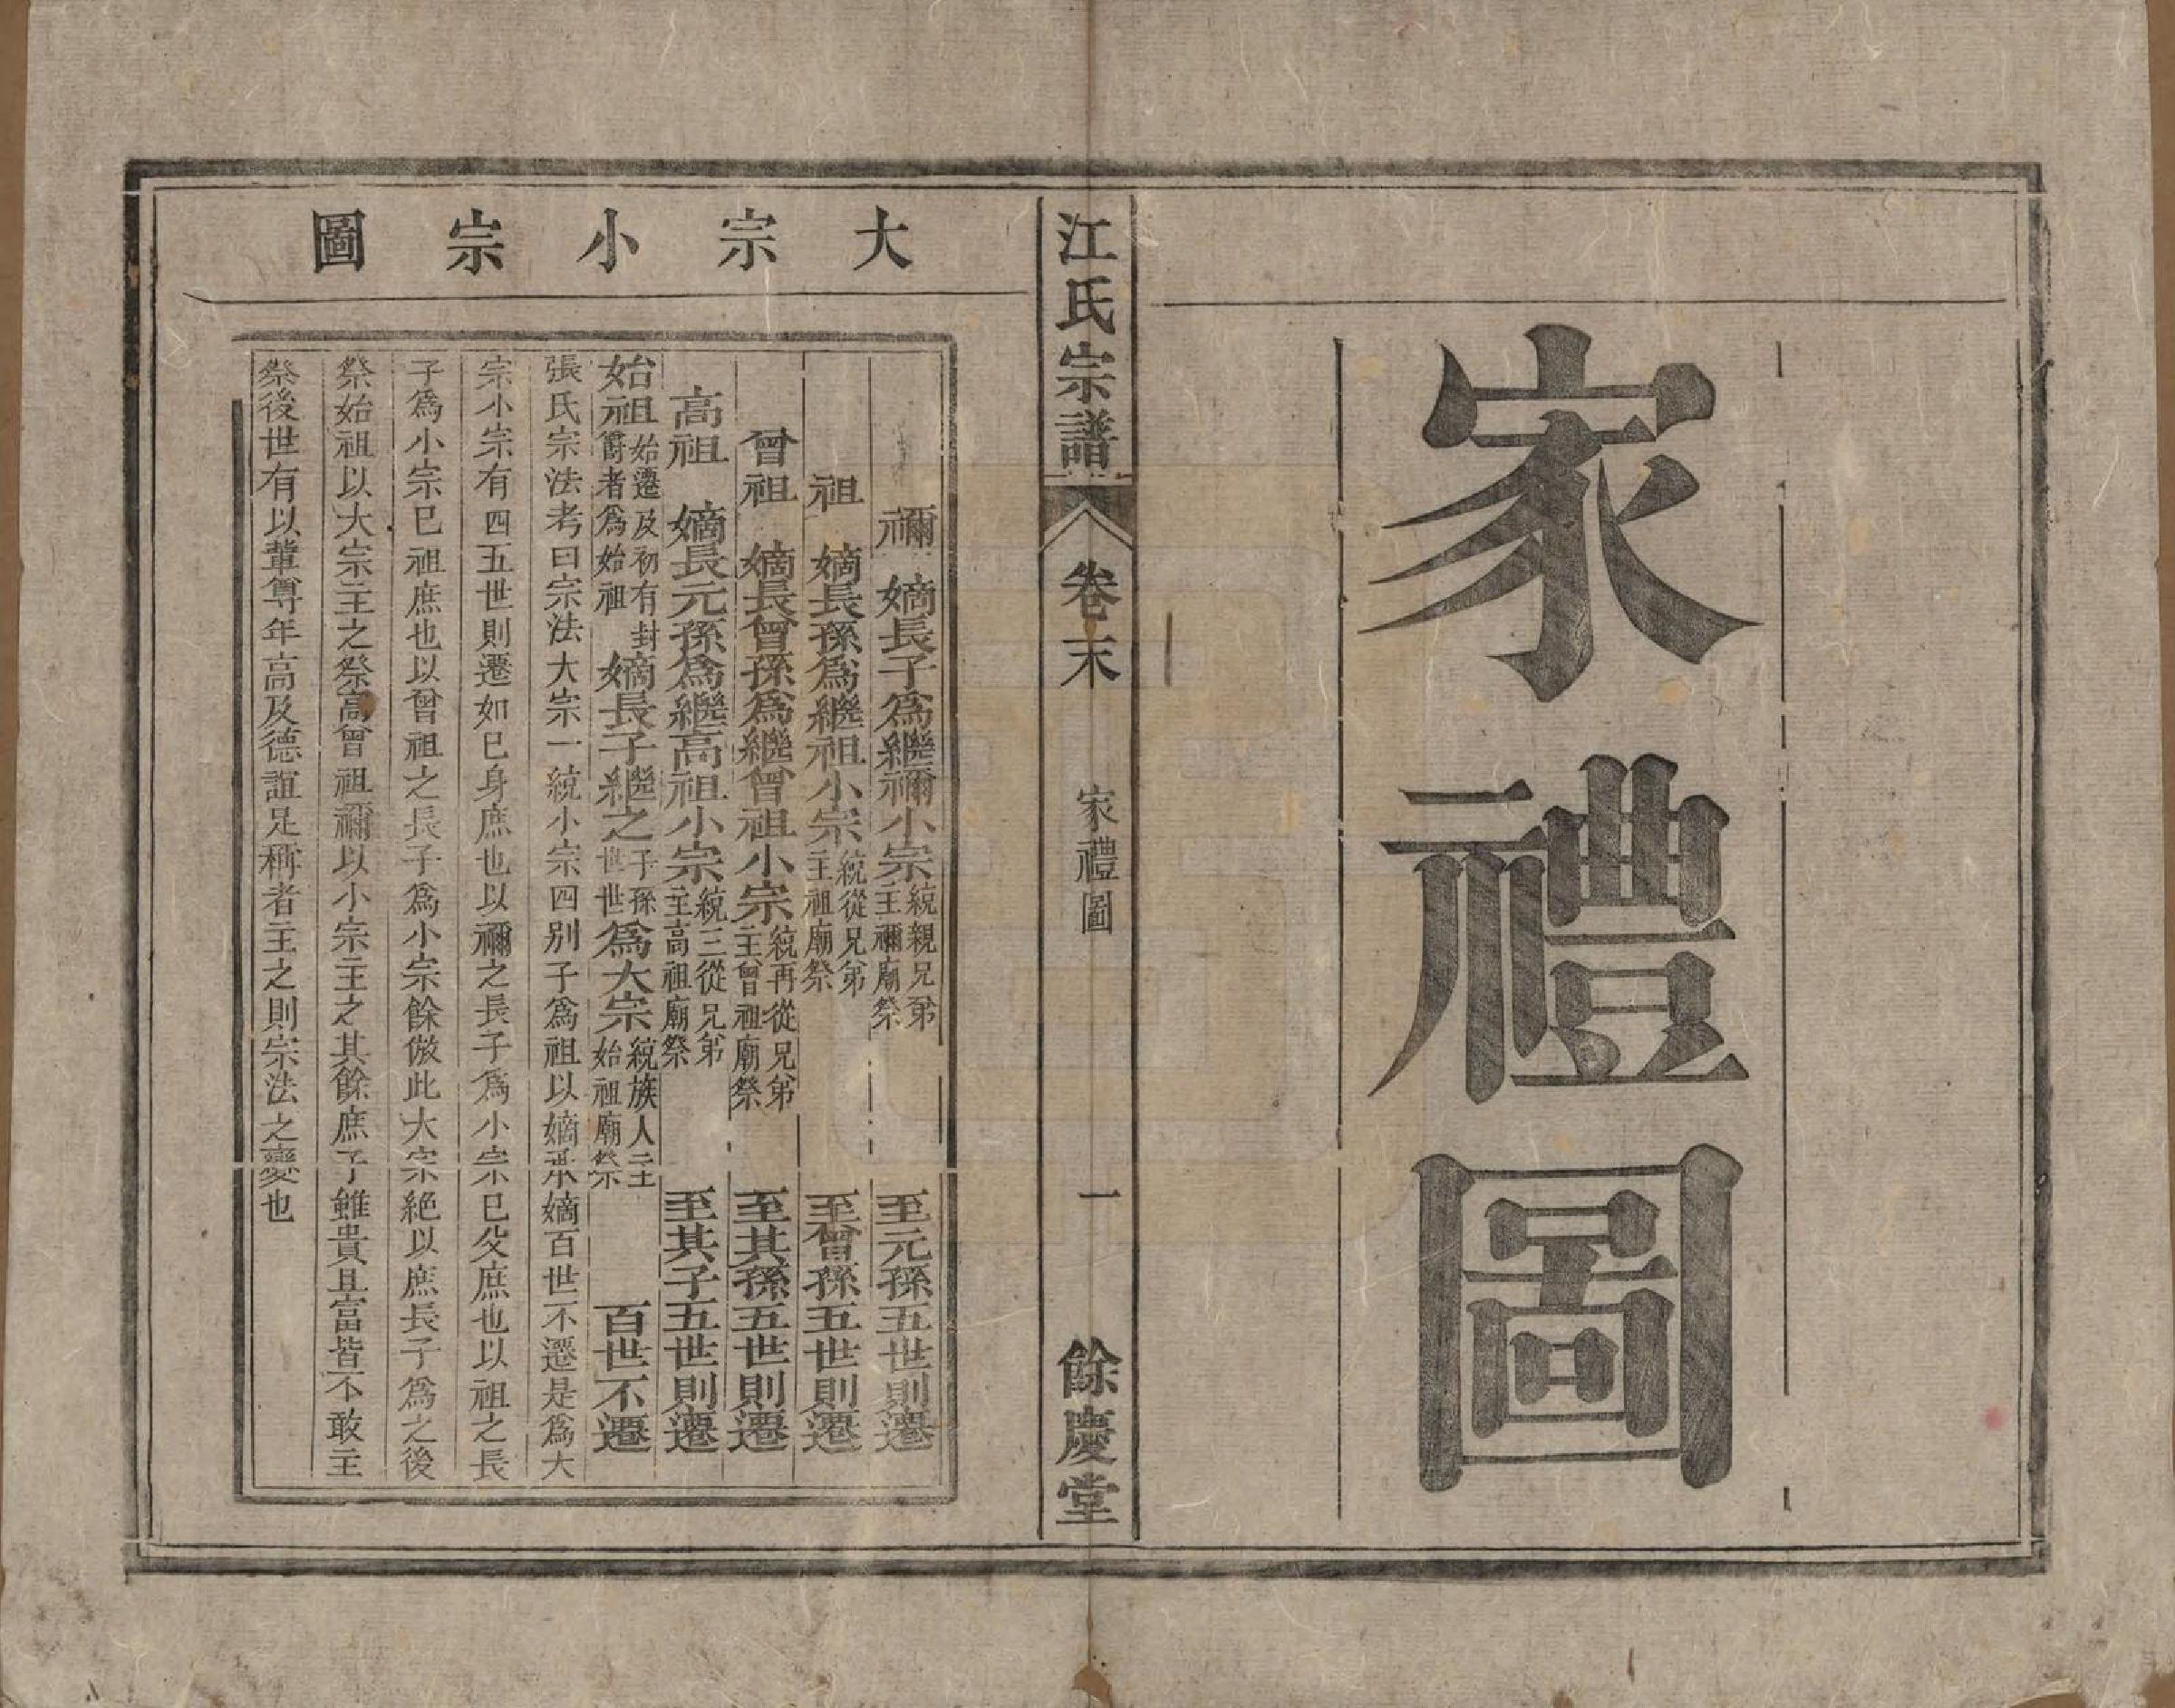 家禮圖
江氏宗譜 卷末 家禮圖 一 餘慶堂
大宗小宗圖
禰 嫡長子為繼禰小宗 統親兄弟主禰廟祭 至元孫五世則遷
祖 嫡長孫為繼祖小宗 統從兄弟主祖廟祭 至曾孫五世則遷
曾祖 嫡長曾孫為繼曾祖小宗 統再從兄弟主曾祖廟祭 至其孫五世則遷
高祖 嫡長元孫為繼高祖小宗 統三從兄弟主高祖廟祭 至其子五世則遷
始祖 始遷及初有封爵者為始祖 嫡長子繼之 子孫世世 為大宗 統族人主始祖廟祭 百世不遷
張氏宗法考曰宗法大宗一統小宗四別子為祖以嫡承嫡百世不遷是為大
宗小宗有四五世則遷如己身庶也以禰之長子為小宗已父庶也以祖之長
子為小宗已祖庶也以曾祖之長子為小宗餘倣此大宗絕以庶長子為之後
祭始祖以大宗主之祭高曾祖禰以小宗主之其餘庶子雖貴且富皆不敢主
祭後世有以輩尊年高及德誼足稱者主之則宗法之變也